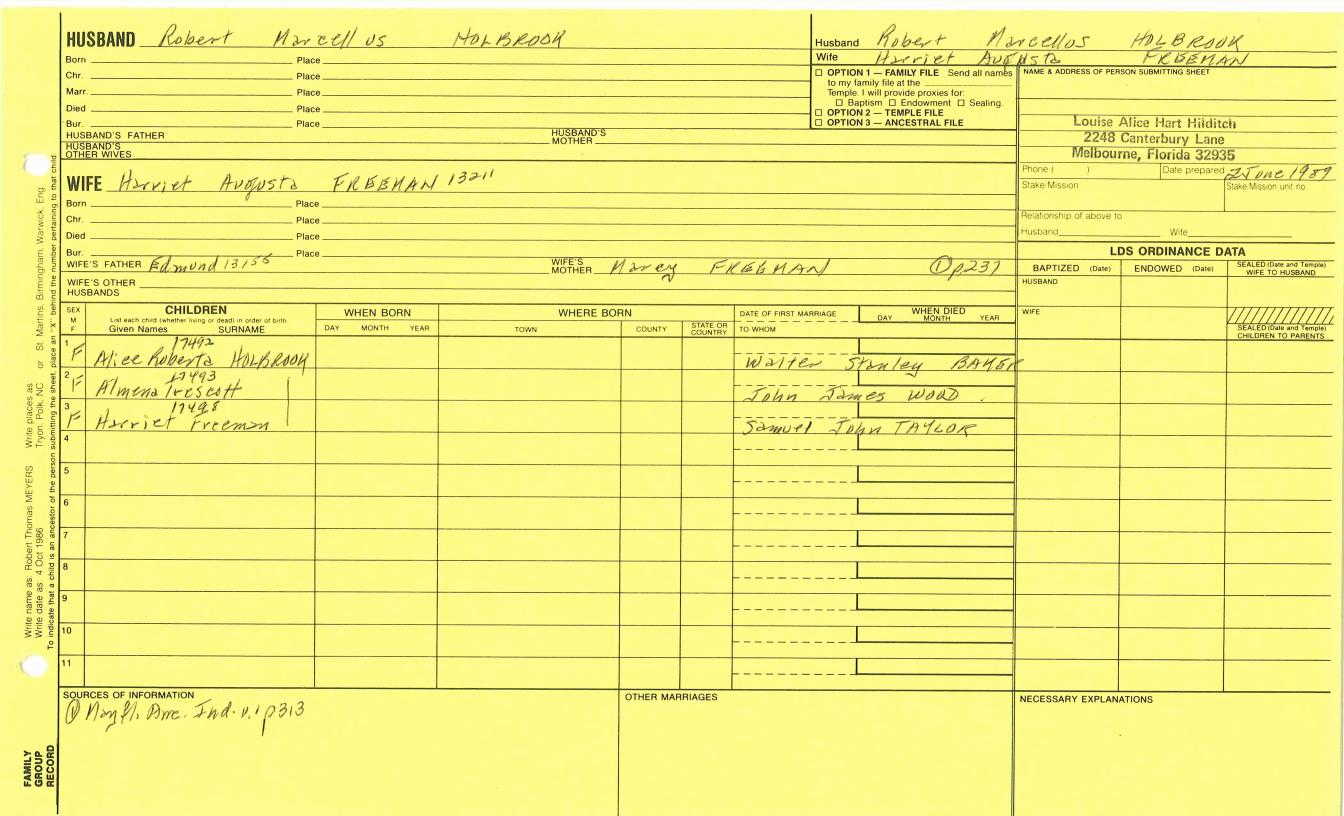 HUSBAND Robert Marcellus HOLBROOK
Born Place
Chr. Place
Marr. Place
Died Place
Bur. Place
HUSBAND'S FATHER HUSBAND'S MOTHER
HUSBAND'S OTHER WIVES
Husband Robert Marcellus HOLBROOK
Wife Harriet Augusta FREEMAN
OPTION 1 — FAMILY FILE Send all names
to my family file at the
Temple. I will provide proxies for:
Baptism Endowment Sealing.
OPTION 2 — TEMPLE FILE
OPTION 3 — ANCESTRAL FILE
NAME & ADDRESS OF PERSON SUBMITTING SHEET
Louise Alice Hart Hilditch
2248 Canterbury Lane
Melbourne, Florida 32935
Phone ( ) Date prepared 2 June 1989
Stake/Mission Stake/Mission unit no
Relationship of above to
Husband Wife
WIFE Harriet Augusta FREEMAN 13211
Born Place
Chr. Place
Died Place
Bur. Place
WIFE'S FATHER Edmund 13155 WIFE'S MOTHER Marcy FREEMAN ① p237
WIFE'S OTHER HUSBANDS
LDS ORDINANCE DATA
BAPTIZED (Date) ENDOWED (Date) SEALED (Date and Temple) WIFE TO HUSBAND
HUSBAND
WIFE
SEALED (Date and Temple) CHILDREN TO PARENTS
SEX M F
CHILDREN
List each child (whether living or dead) in order of birth
Given Names SURNAME
WHEN BORN
DAY MONTH YEAR
WHERE BORN
TOWN COUNTY STATE OR COUNTRY
DATE OF FIRST MARRIAGE
TO WHOM
WHEN DIED
DAY MONTH YEAR
1 F 17492
Alice Roberta HOLBROOK Walter Stanley BAKER
2 F 17493
Almena Trescott John James WOOD
3 F 17498
Harriet Freeman Samuel John TAYLOR
4
5
6
7
8
9
10
11
SOURCES OF INFORMATION
① Mayfl. Anc. Ind. v.1 p313
OTHER MARRIAGES
NECESSARY EXPLANATIONS
Write name as: Robert Thomas MEYERS Write places as Tryon, Polk, NC or St. Martins, Birmingham, Warwick, Eng.
Write date as: 4 Oct 1986
To indicate that a child is an ancestor of the person submitting the sheet, place an "X" behind the number pertaining to that child
FAMILY
GROUP
RECORD